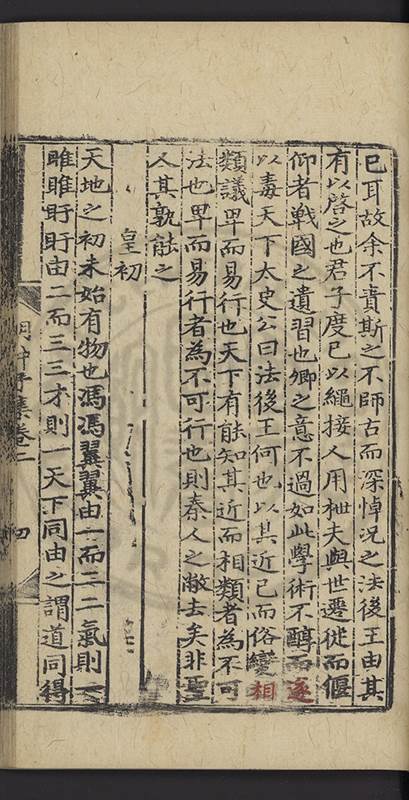 已耳故余不責斯之不師古而深悼况之法後王由其
有以啓之也君子度己以繩接人用枻夫與世遷徙而偃
仰者戰國之遺習也卿之意不過如此學術不醇而遂
以毒天下太史公曰法後王何也以其近己而俗變相
類議卑而易行也天下有能知其近而相類者為不可
法也卑而易行者為不可行也則秦人之敝去矣非聖
人其孰能之
皇初
天地之初未始有物也馮馮翼翼由一而二二氣則一
睢睢盱盱由二而三三才則一天下同由之謂道同得
集卷二
四